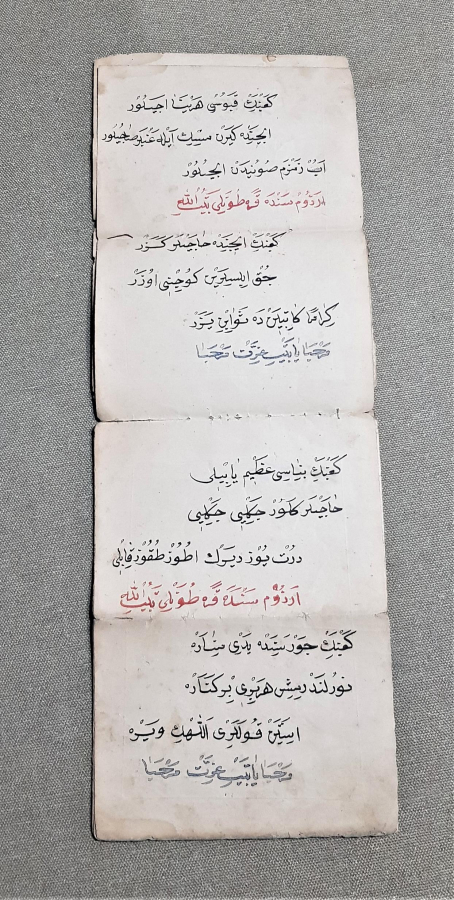 كعبنك قپوسی هر بنا اچيلور
ايچنده كيرن مسك ايله عنبر صاچيلور
آب زمزم صوئيدن ايچيلور
ارزوم سنده قره طونلی بيت الله
كعبنك ايچنده حاجيلر كزر
چوق ايسترس كوچنی اوزر
كراما كاتبين ده ثوابن يزر
مرحبا يا بيت عزت مرحبا
كعبنك بناسی عظيم ياپيلی
حاجيلر كلور چكيپی چكيپی
درت يوز ديرك اطوز طقوز قاپلی
ارزوم سنده قره طونلی بيت الله
كعبنك جورسنده يدی مناره
نورلندرمش هر بری بر كناره
استين قوللری اللهك ويره
مرحبا يا بيت عزت مرحبا